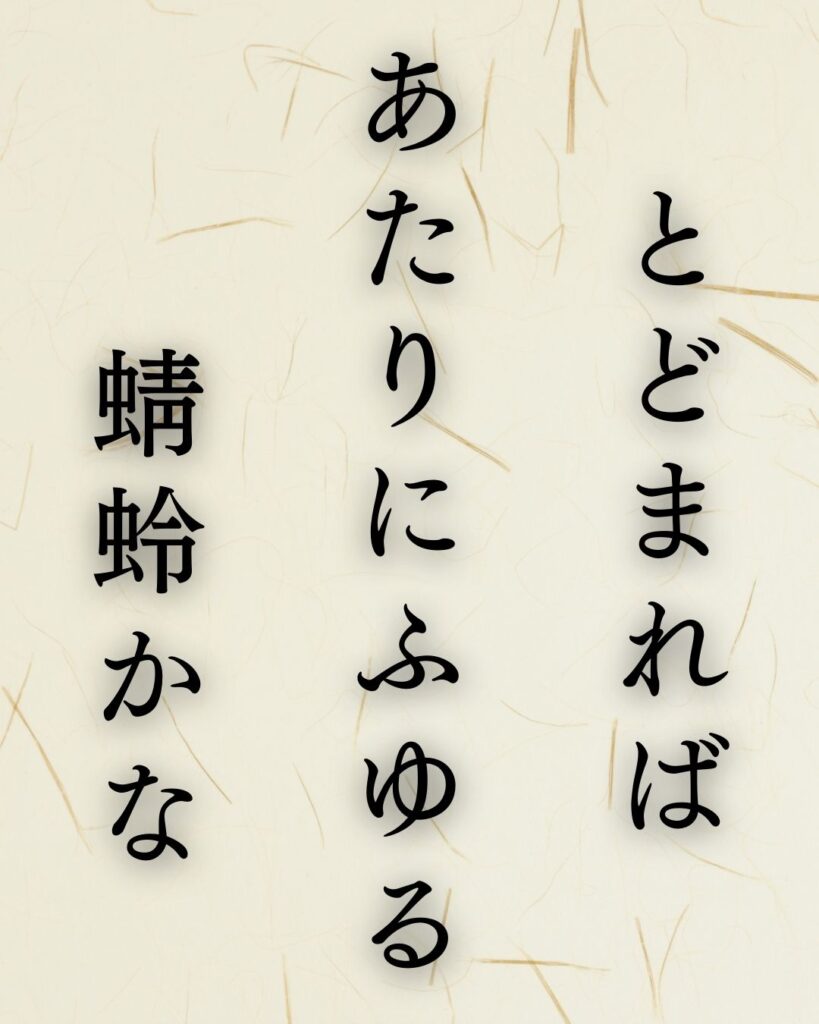 とどまれば
あたりにふゆる
蜻蛉かな